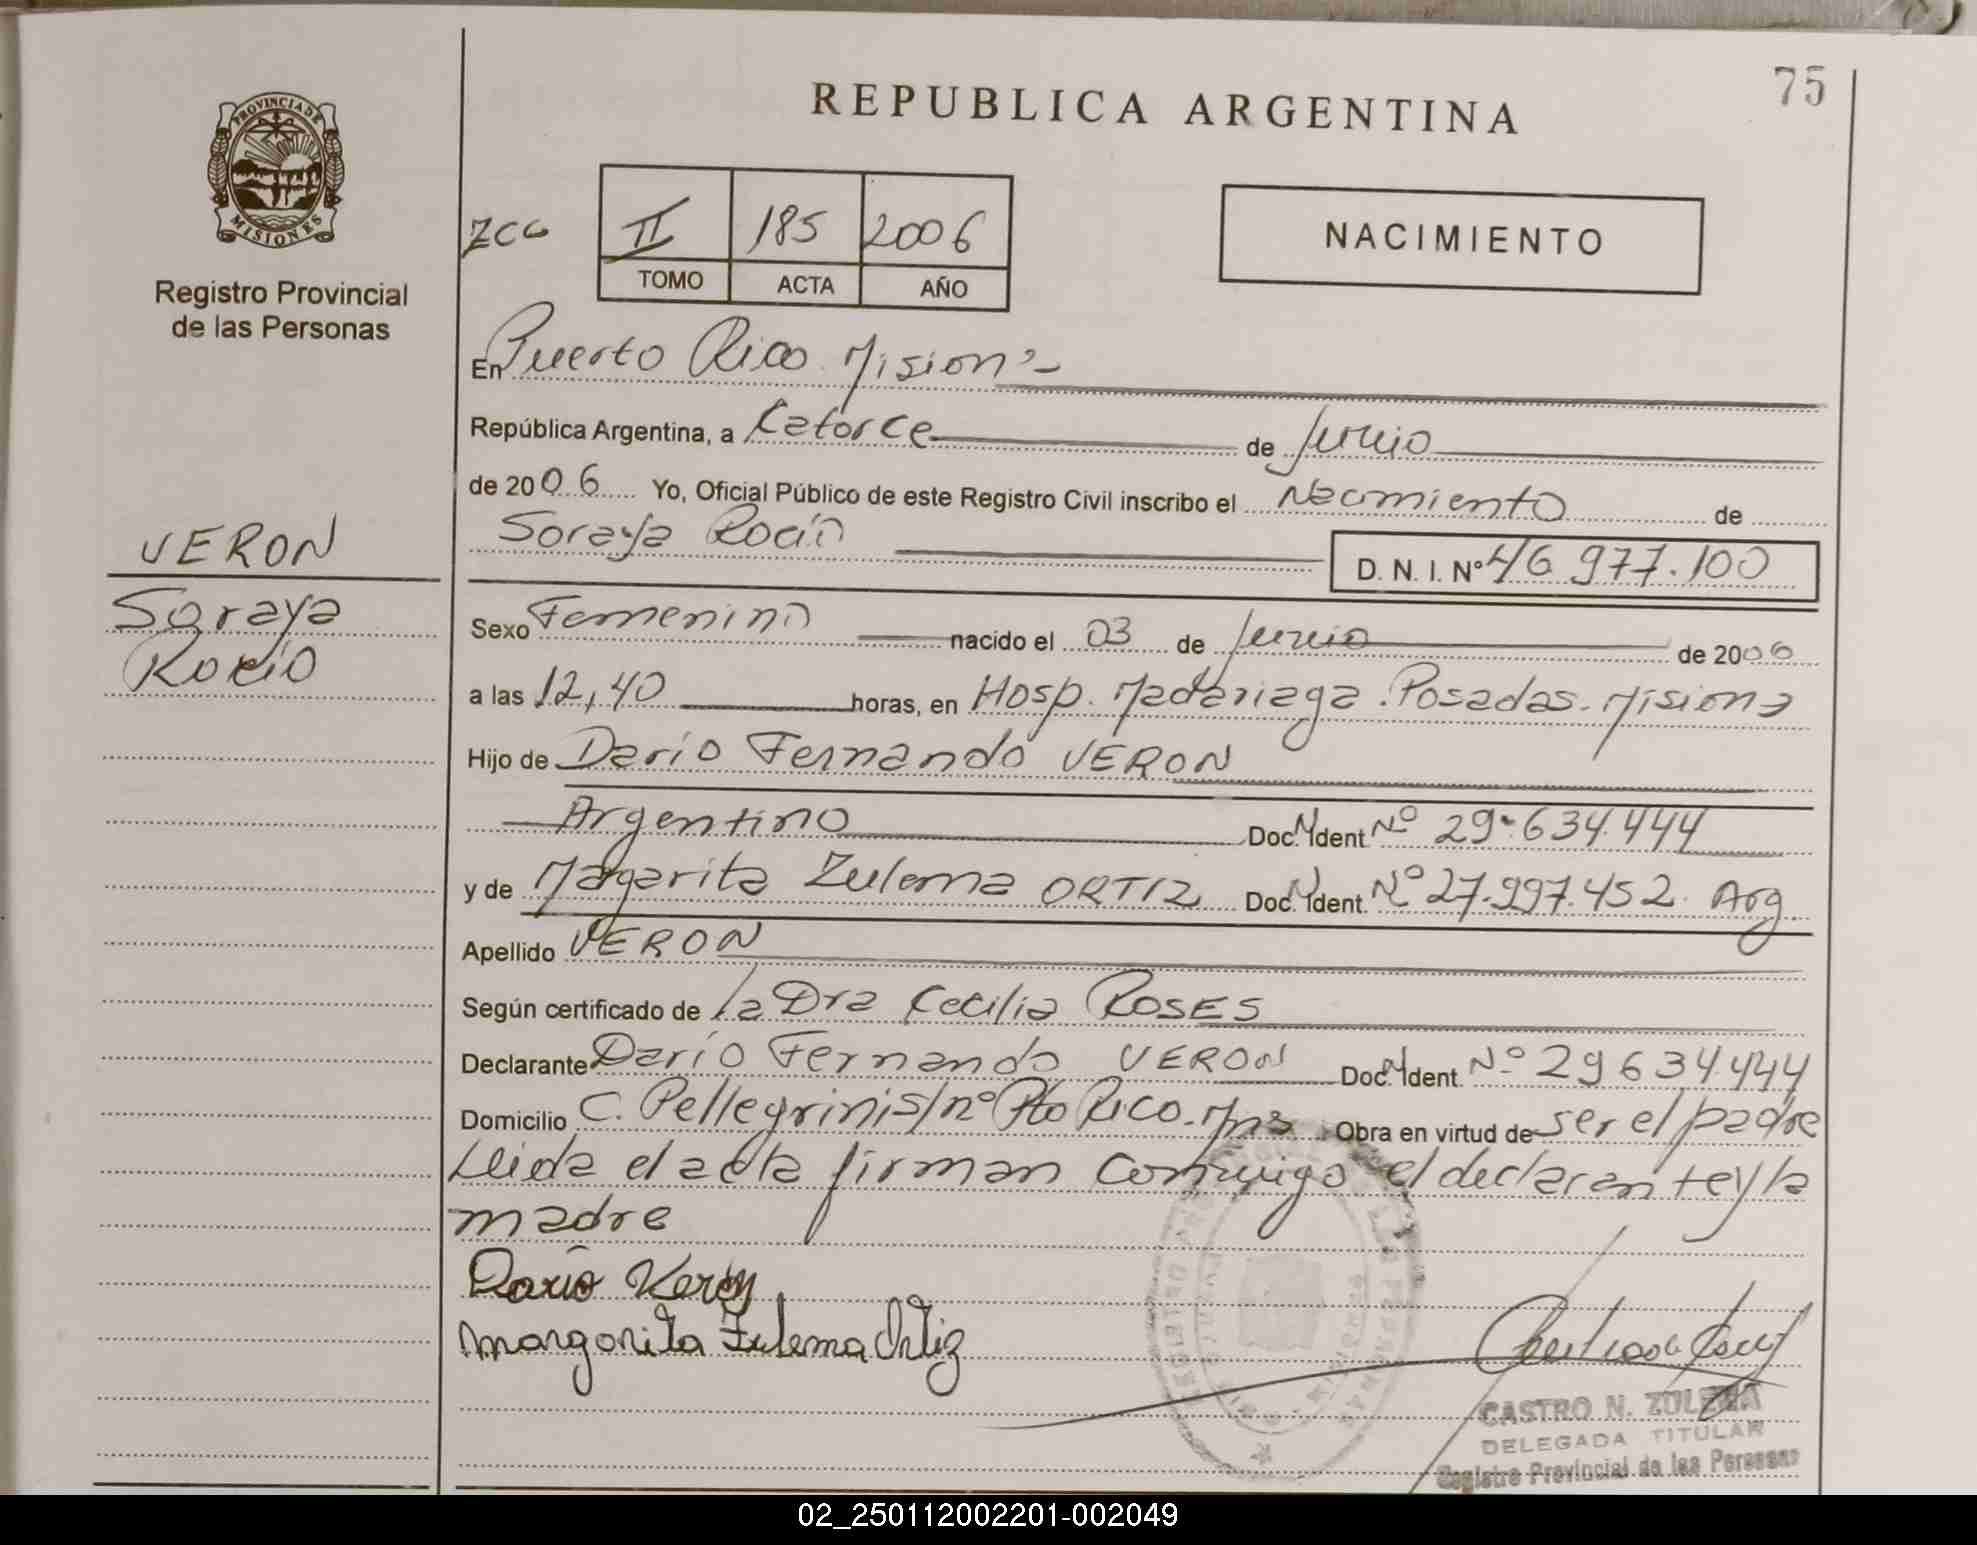 75
REPUBLICA ARGENTINA
PROVINCIA DE
MISIONES
Registro Provincial
de las Personas
II 185 2006
TOMO ACTA AÑO
NACIMIENTO
En Puerto Rico Misiones
República Argentina, a Catorce de Junio
de 2006 Yo, Oficial Público de este Registro Civil inscribo el Nacimiento de
Soraya Rocío D. N. I. Nº 46 977.100
VERON
Soraya
Rocío
Sexo Femenino nacido el 03 de Junio de 2006
a las 12,40 horas, en Hosp. Madariaga. Posadas. Misiones
Hijo de Darío Fernando VERON
Argentino Doc. Ident. Nº 29.634.444
y de Magarita Zulema ORTIZ Doc. Ident. Nº 27.997.452 Arg
Apellido VERON
Según certificado de la Dra Cecilia ROSES
Declarante Darío Fernando VERON Doc. Ident. Nº 29 634.444
Domicilio C. Pellegrini s/nº Pto Rico. Mnes Obra en virtud de ser el padre
Leida el acta firman conmigo el declarante y la
madre
Darío Veron
Margarita Zulema Ortiz
CASTRO N. ZULEMA
DELEGADA TITULAR
Registro Provincial de las Personas
02_250112002201-002049